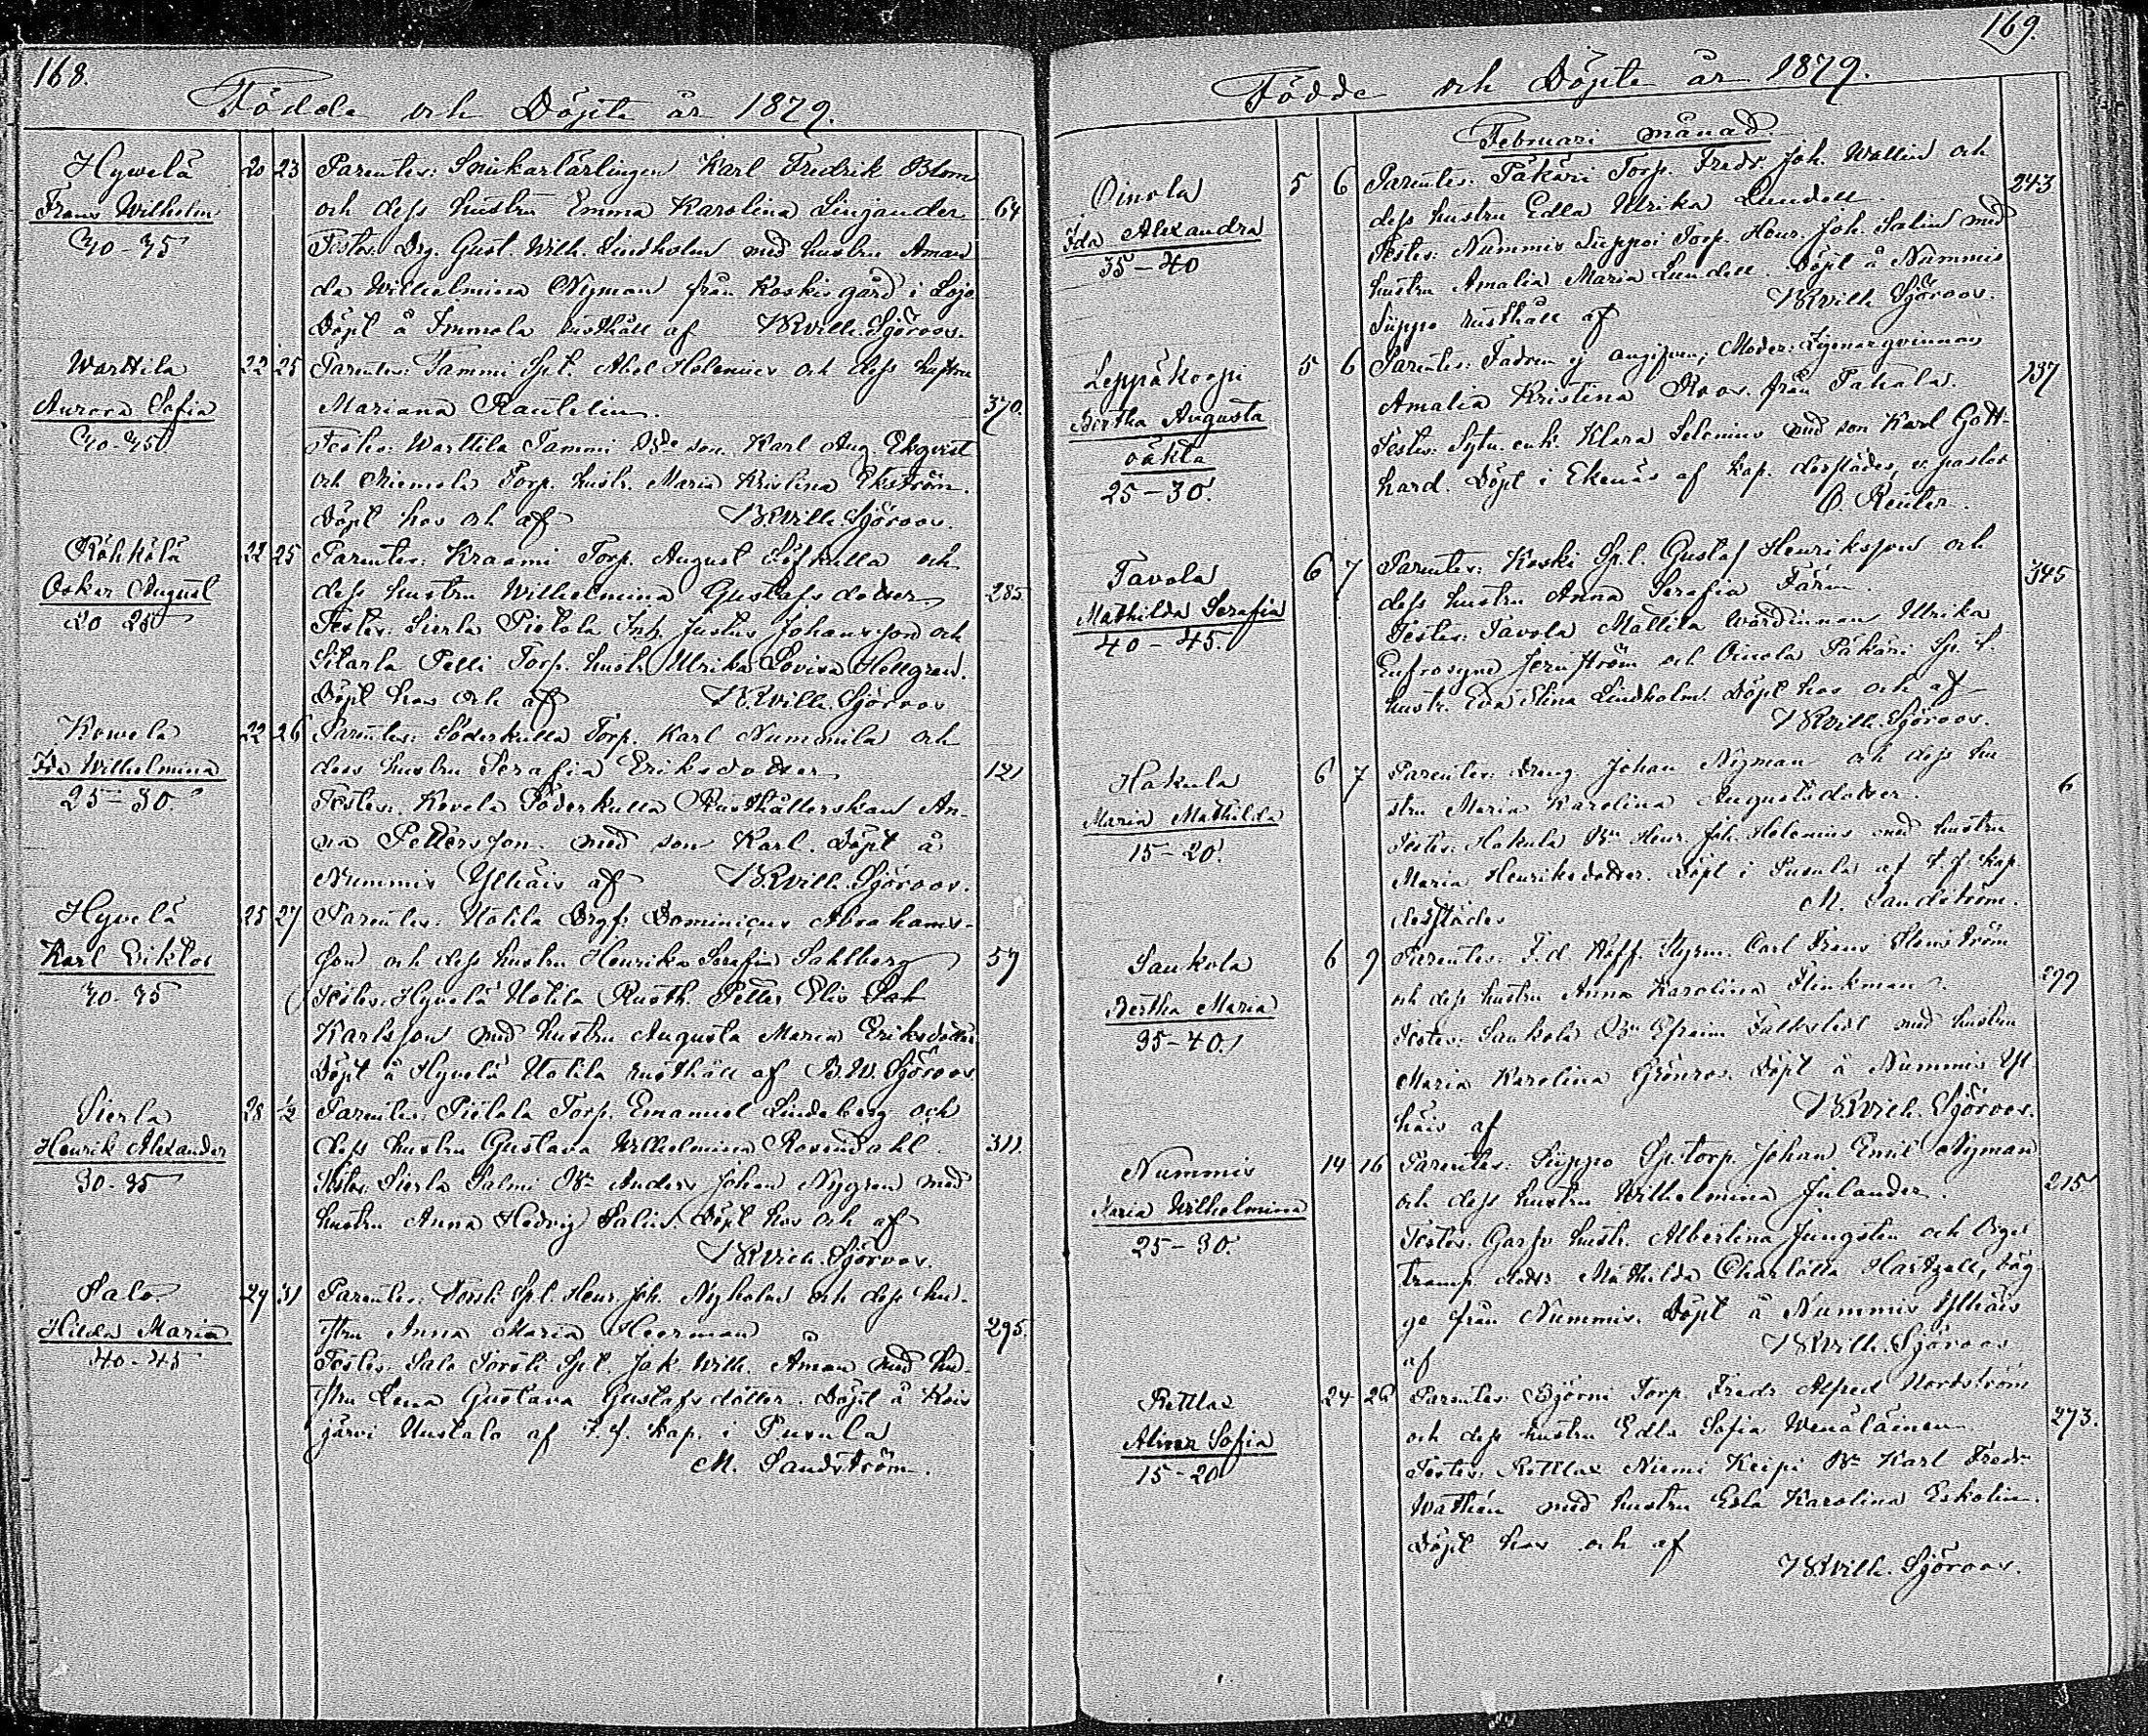 168.
Födde och Döpte år 1879.
Hyvelä 20 23 Parentes: Snickarlärlingen Karl Fredrik Blom
Frans Wilhelm och dess hustru Emma Karolina Linjander 64
40-45 Testes: Drg. Gust. Wilh. Lindholm med hustru Aman
da Wilhelmina Nyman från Koskis gård i Lojo
Döpt å Immola rusthåll af Wilh. Sjöroos.
Warttila 22 25 Parentes: Tammi Spl. Abel Helenius och dess hustru
Aurora Sofia Mariana Rautelin. 370.
40-45 Testes: Warttila Tammi son Karl Aug. Ekqvist
och Niemela Torp. hustr. Maria Kristina Ekström.
Döpt hos och af Wilh. Sjöroos.
22 25 Parentes: Kraami Torp. August Löfkulla och
Oskar August dess hustru Wilhelmina Gustafsdotter. 285
20 25 Testes: Sierla Pietola Inh. Justus Johansson och
Pelli Torp. hustr. Ulrika Lovisa Hellgren.
Döpt hos och af Wilh. Sjöroos
Kowela 22 26 Parentes: Söderkulla Torp. Karl Nummila och
Ida Wilhelmina dess hustru Serafia Eriksdotter 121
25-30. Testes: Kovela Söderkulla Rusthållerskan An-
na Pettersson med son Karl. Döpt å
Nummis Ylhäis af Wilh. Sjöroos.
Hyvelä 25 27 Parentes: Uotila Drgf. Dominicus Abrahams-
Karl Viktor son och dess hustru Henrika Serafia Sahlberg 57
40-45 Testes: Hyvelä Uotila Rusth. Petter Elis
Karlsson med hustru Augusta Maria Eriksdotter
Döpt å Hyvelä Uotila rusthåll af B.W. Sjöroos
Sierla 28 1/2 Parentes: Pietola Torp. Emanuel Lindeberg och
Henrik Alexander dess hustru Gustava Wilhelmina Rosendahl. 311.
30-35 Testes: Sierla Salmi Anders Johan Nygren med
hustru Anna Hedvig Salin. Döpt hos och af
Wilh. Sjöroos.
Salo 29 31 Parentes: Torsti Spl. Henr. Joh. Nyholm och dess hu-
Hilda Maria stru Anna Maria Heerman 295.
40-45 Testes: Salo Torsti Spl. Jak. Wilh. Åman med hu-
stru Lena Gustava Gustafsdotter. Döpt å Kois
järvi Uustalo af t.f. kap. i Pusula
M. Sandström.
169.
Födde och Döpte år 1879.
Februari månad.
Oinola 5 6 Parentes: Päkäri Torp. Fredr. Joh. Wallin och
Ida Alexandra dess hustru Edla Ulrika Lundell. 243
35-40 Testes: Nummis Torp. Henr. Joh. Salin med
hustru Amalia Maria Lundell. Döpt å Nummis
rusthåll af Wilh. Sjöroos.
Leppäkorpi 5 6 Parentes: Fadren ej angifven; Moder: Zigenarqvinnan
Bertha Augusta Amalia Kristina Roos från Pakala. 137
oäkta Testes: enk. Klara Selenius med son Karl Gott-
25-30. hard. Döpt i Ekenäs af kap. derstädes, v. pastor
O. Reuter.
Tavola 6 7 Parentes: Koski Sp.l. Gustaf Henriksson och
Mathilda Serafia dess hustru Anna Serafia Färm. 345
40-45. Testes: Tavola Mattila Wärdinnan Ulrika
Eufrosyne Jernström och Oinola Päkäri Sp. l.
hustr. Eva Stina Lindholm. Döpt hos och af
Wilh. Sjöroos.
Hakula 6 7 Parentes: Dreng. Johan Nyman och dess hu
Maria Mathilda stru Maria Karolina Augustsdotter. 6
15-20. Testes: Hakula Henr. Joh. Helenius med hustru
Maria Henriksdotter. Döpt i Pusula af t.f. kap.
derstädes M. Sandström.
Saukola 6 9 Parentes: F.d. Styrm. Carl Frans
Bertha Maria och dess hustru Anna Karolina Flinkman. 299
35-40. Testes: Saukola Efraim med hustru
Maria Karolina Grönroos. Döpt å Nummis Yl-
häis af Wilh. Sjöroos.
Nummis 14 16 Parentes: Sp.torp. Johan Emil Nyman
Maria Wilhelmina och dess hustru Wilhelmina Julander. 215
25-30. Testes: hustr. Albertina Ljungsten och Orgel
tramp. dotr. Mathilda Charlotta Hartzell, båg
ge från Nummis. Döpt å Nummis Ylhäis
af Wilh. Sjöroos
Rettlax 24 26 Parentes: Björni Torp. Fredr. Alfred Nordström
Alina Sofia och dess hustru Edla Sofia Wenäläinen. 273.
15-20 Testes: Rettlax Niemi Keipi Karl Fredr.
Wathén med hustru Eva Karolina Eskolin.
Döpt hos och af
Wilh. Sjöroos.